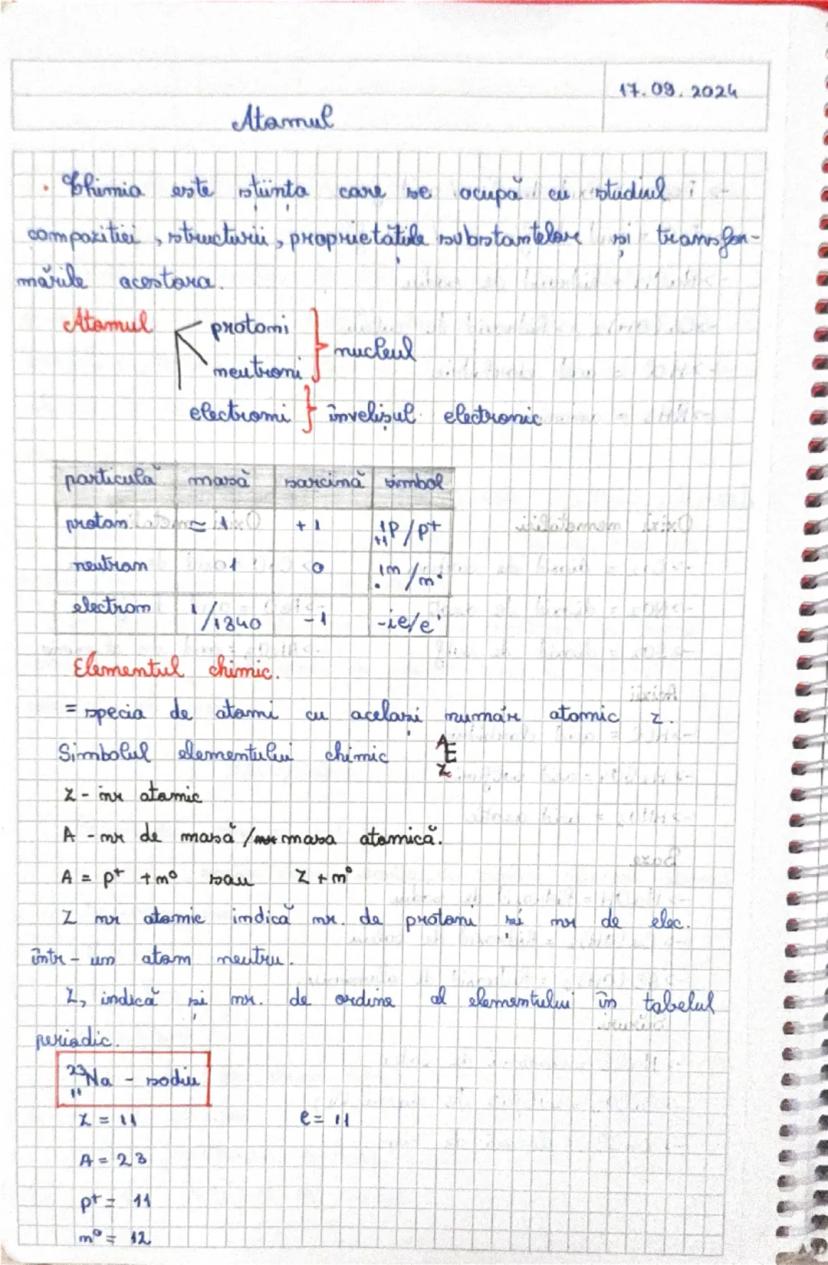 17.09.2024
Atomul
• Chimia este știința care se ocupă cu studiul
compoziției, structurii, proprietățile substanțelor și transfor-
mările acestora.
Atomul protoni
neutroni } nucleul
electroni } învelișul electronic
particulă masă sarcină simbol
proton ≃ 1 +1 ¹₊₁p/p⁺
neutron 1 0 ¹₀n/n⁰
electron 1/1840 -1 -ie/e⁻
Elementul chimic.
= specia de atomi cu același număr atomic z.
Simbolul elementului chimic ᴬ_Z E
Z - nr atomic
A - nr de masă / masa atomică.
A = p⁺ + n⁰ sau Z + n⁰
Z nr atomic indică nr. de protoni și nr de elec.
într-un atom neutru.
Z, indică și nr. de ordine al elementului în tabelul
periodic.
²³₁₁Na - sodiu
Z = 11 e = 11
A = 23
p⁺ = 11
n⁰ = 12